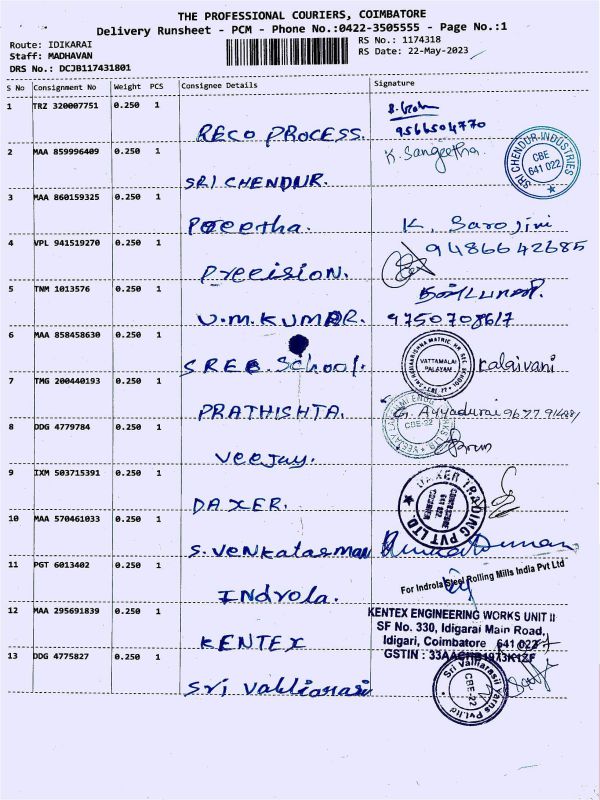 THE PROFESSIONAL COURIERS, COIMBATORE
Delivery Runsheet - PCM - Phone No.:0422-3505555 - Page No.:1
Route: IDIKARAI
RS No.: 1174318
Staff: MADHAVAN
RS Date: 22-May-2023
DRS No.: DCJB117431801
S No Consignment No Weight PCS Consignee Details Signature
1 TRZ 320007751 0.250 1
RECO PROCESS. 9566504770
2 MAA 859996409 0.250 1 K. Sangeetha
SRI CHENDUR.
SRI CHENDUR INDUSTRIES
CBE
641 022
3 MAA 860159325 0.250 1
K. Sarojini
4 VPL 941519270 0.250 1 9486642685
Precision.
5 TNM 1013576 0.250 1
U.M.KUMAR. 9750708617
6 MAA 858458630 0.250 1
SREE. School. Kalaivani
VATTAMALAI
PALAYAM
7 TMG 200440193 0.250 1
PRATHISHTA. G. Ayyadurai
8 DDG 4779784 0.250 1
CBE-22
Veejay.
9 IXM 503715391 0.250 1
DAXER.
DAXER TRADING PVT LTD.
COIMBATORE
641 022
10 MAA 570461033 0.250 1
S. Venkatasman
11 PGT 6013402 0.250 1
For Indrola Steel Rolling Mills India Pvt Ltd
Indrola.
12 MAA 295691839 0.250 1
KENTEX ENGINEERING WORKS UNIT II
SF No. 330, Idigarai Main Road,
Idigari, Coimbatore 641 022
KENTEX
13 DDG 4775827 0.250 1 GSTIN :
Sri Valliarasi
Sri Valliarasii Yarns Pvt.Ltd
CBE-22